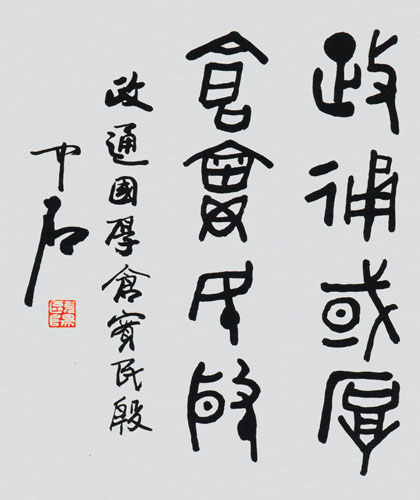 政通國厚
倉實民殷
政通國厚倉實民殷
中石